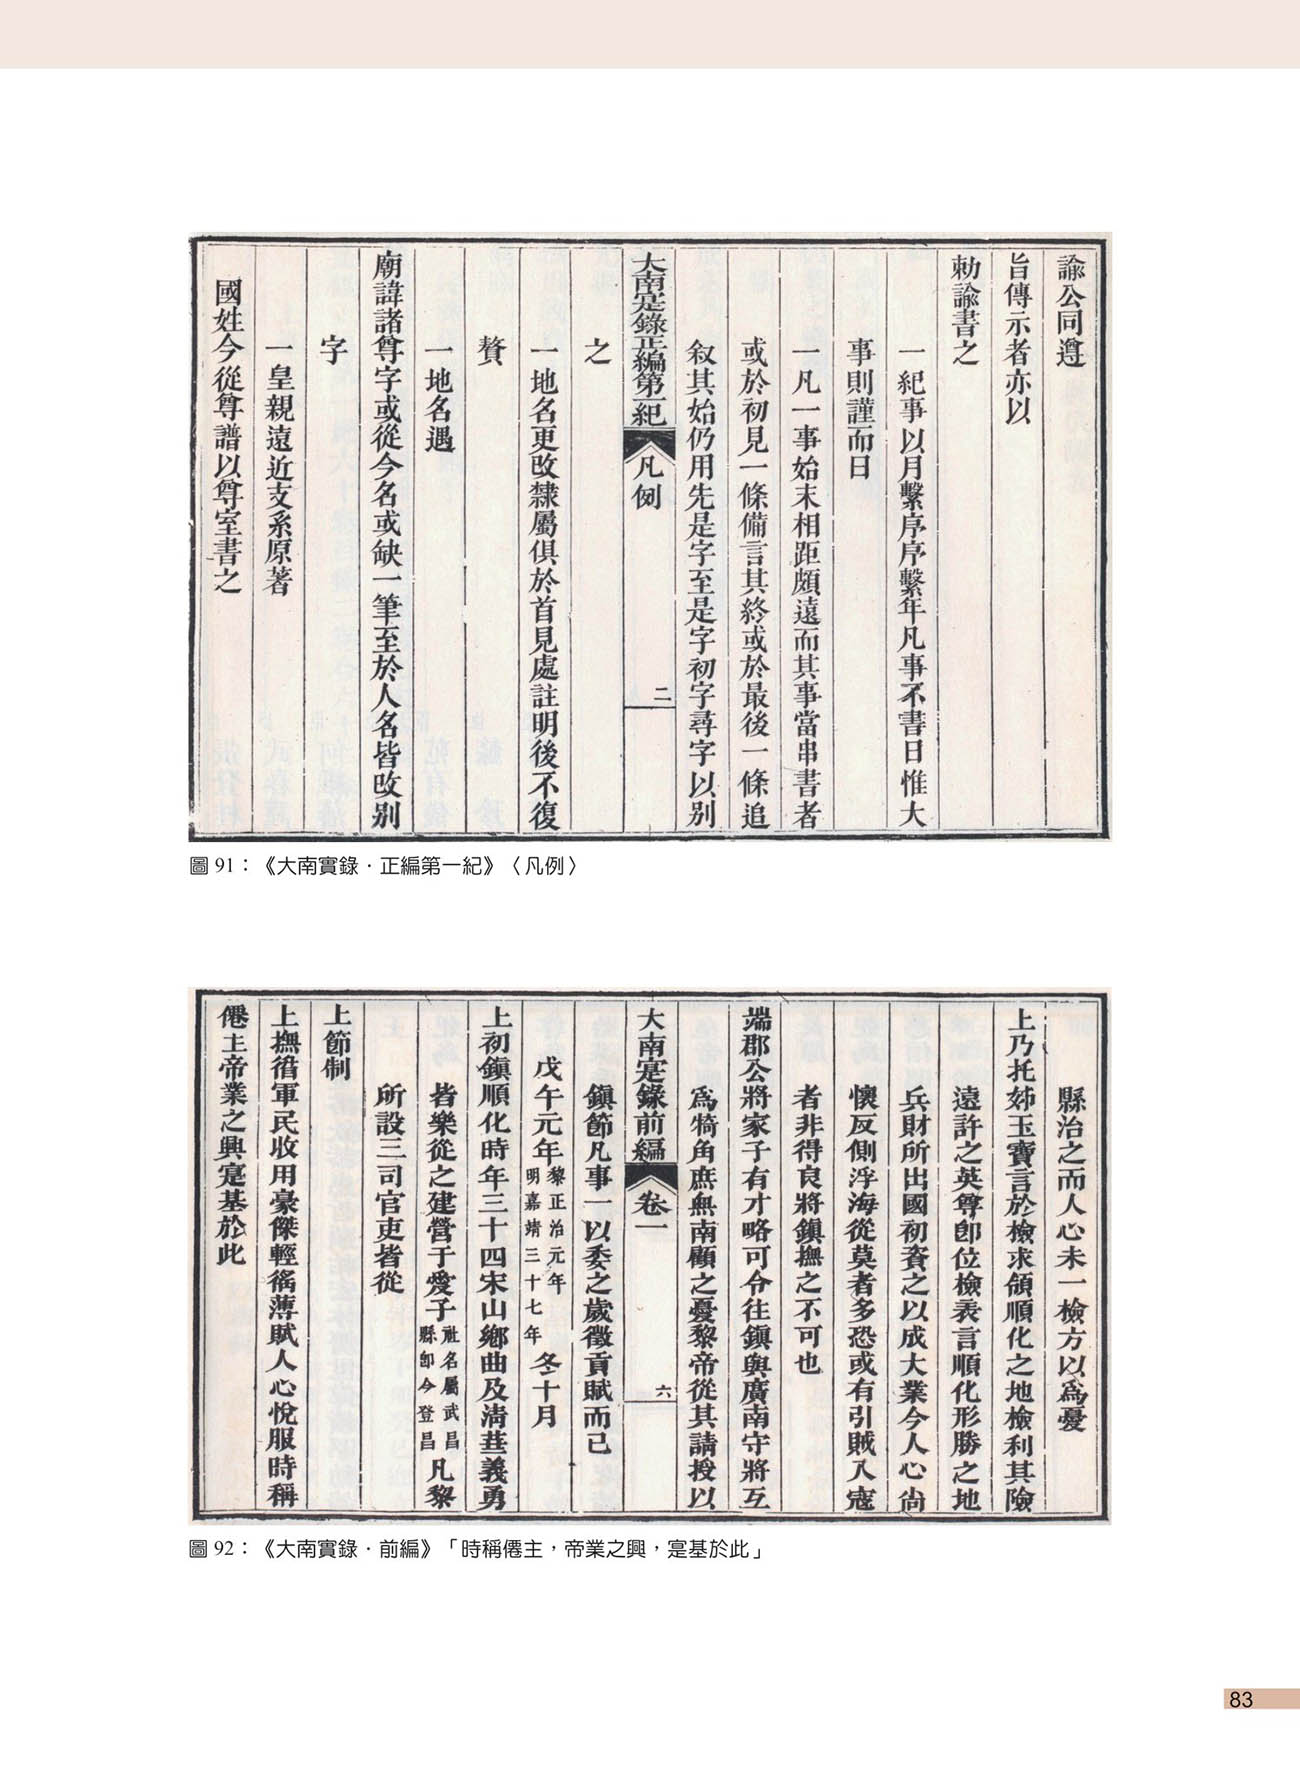 諭公同遵
旨傳示者亦以
勅諭書之
一紀事以月繫序序繫年凡事不書日惟大
事則謹而日
一凡一事始末相距頗遠而其事當串書者
或於初見一條備言其終或於最後一條追
敘其始仍用先是字至是字初字尋字以别
大南寔錄正編第一紀 凡例 二
之
一地名更改隸屬俱於首見處註明後不復
贅
一地名遇
廟諱諸尊字或從今名或缺一筆至於人名皆改别
字
一皇親遠近支系原著
國姓今從尊譜以尊室書之
圖 91：《大南實錄·正編第一紀》〈凡例〉
縣治之而人心未一檢方以為憂
上乃托姊玉寶言於檢求領順化之地檢利其險
遠許之英尊卽位檢表言順化形勝之地
兵財所出國初資之以成大業今人心尚
懷反側浮海從莫者多恐或有引賊入寇
者非得良將鎭撫之不可也
端郡公將家子有才略可令往鎭與廣南守將互
為犄角庶無南顧之憂黎帝從其請授以
大南寔錄前編 卷一 六
鎭節凡事一以委之歲徵貢賦而已
戊午元年黎正治元年明嘉靖三十七年冬十月
上初鎭順化時年三十四宋山鄉曲及清葩義勇
皆樂從之建營于愛子社名屬武昌縣卽今登昌凡黎
所設三司官吏皆從
上節制
上撫循軍民收用豪傑輕徭薄賦人心悅服時稱
僊主帝業之興寔基於此
圖 92：《大南實錄·前編》「時稱僊主，帝業之興，寔基於此」
83